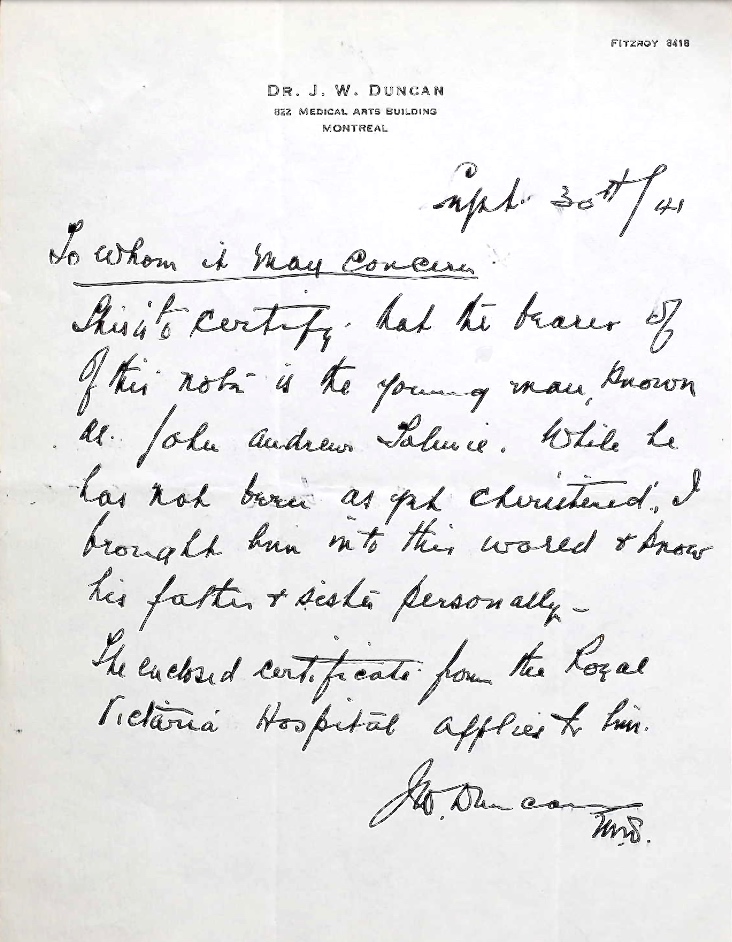 FITZROY 8418
DR. J. W. DUNCAN
822 MEDICAL ARTS BUILDING
MONTREAL
Sept. 30th/41
To Whom it May Concern
This is to certify that the bearer of
of this note is the young man, known
as John Andrew. While he
has not been as yet christened, I
brought him into this world & know
his father & sister personally –
The enclosed certificate from the Royal
Victoria Hospital applies to him.
J.W. Duncan
M.D.